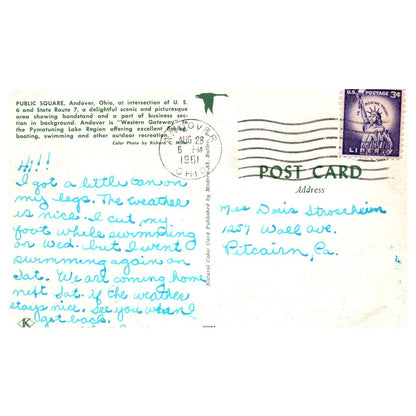 PUBLIC SQUARE, Andover, Ohio, at intersection of U. S.
6 and State Route 7, a delightful scenic and picturesque
area showing bandstand and a part of business sec-
tion in background. Andover is "Western Gateway" to
the Pymatuning Lake Region offering excellent fishing,
boating, swimming and other outdoor recreation.
Color Photo by Richard C.
ANDOVER
AUG 29
6 PM
1961
OHIO
U.S. POSTAGE 3¢
IN GOD WE TRUST
LIBERTY
POST CARD
Address
Hi!!
I got a little tan on
my legs. The weather
is nice. I cut my
foot while swimming
on Wed. but I went
swimming again on
Sat. We are coming home
next Sat. if the weather
stays nice. See you when I
get back.
Miss Doris Stroscheim
1257 Wall Ave.
Pitcairn, Pa.
Natural Color Card Published by Modern Ad, Butler,
K